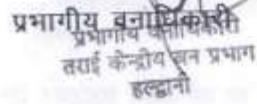 प्रभागीय वनाधिकारी
प्रभागीय वनाधिकारी
तराई केन्द्रीय वन प्रभाग
हल्द्वानी